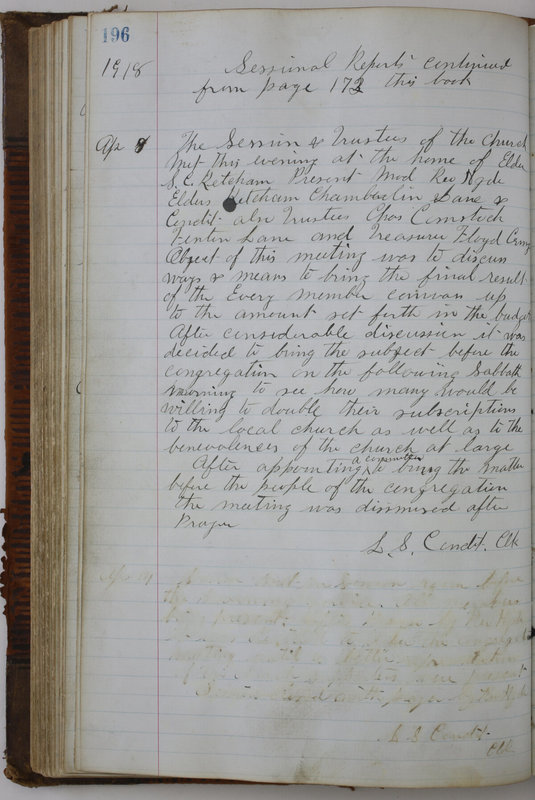 196
1918
Sessional Reports continued
from page 172 this book
Apr 8 The Session & Trustees of the Church
met this evening at the home of Elder
S. C. Ketcham Present Mod Rev Hyde
Elders Ketcham Chamberlin Lane &
Condit also Trustees Chas Comstock
Fenton Lane and Treasurer Floyd
Object of this meeting was to discuss
ways & means to bring the final result
of the Every member canvas up
to the amount set forth in the budget
After considerable discussion it was
decided to bring the subject before the
congregation on the following Sabbath
morning to see how many would be
willing to double their subscriptions
to the local church as well as to the
benevolences of the church at large
After appointing a committee to bring the matter
before the people of the congregation
the meeting was dismissed after
Prayer
L. S. Condit. Clk
Apr 14 Session in Session room before
the morning service. All members
being present after prayer by Rev Hyde
until a
were present
Session closed with prayer by Rev Hyde
L S Condit
Clk